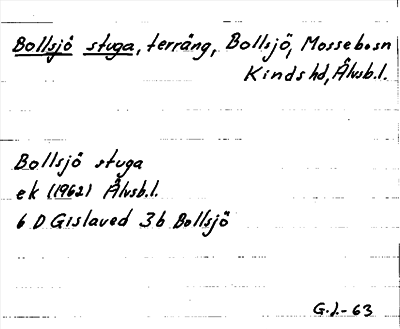 Bollsjö stuga, terräng, Bollsjö, Mossebo sn
Kinds hd, Älvsb.l.
Bollsjö stuga
ek (1962) Älvsb.l.
6 D Gislaved 3b Bollsjö
G.J.-63